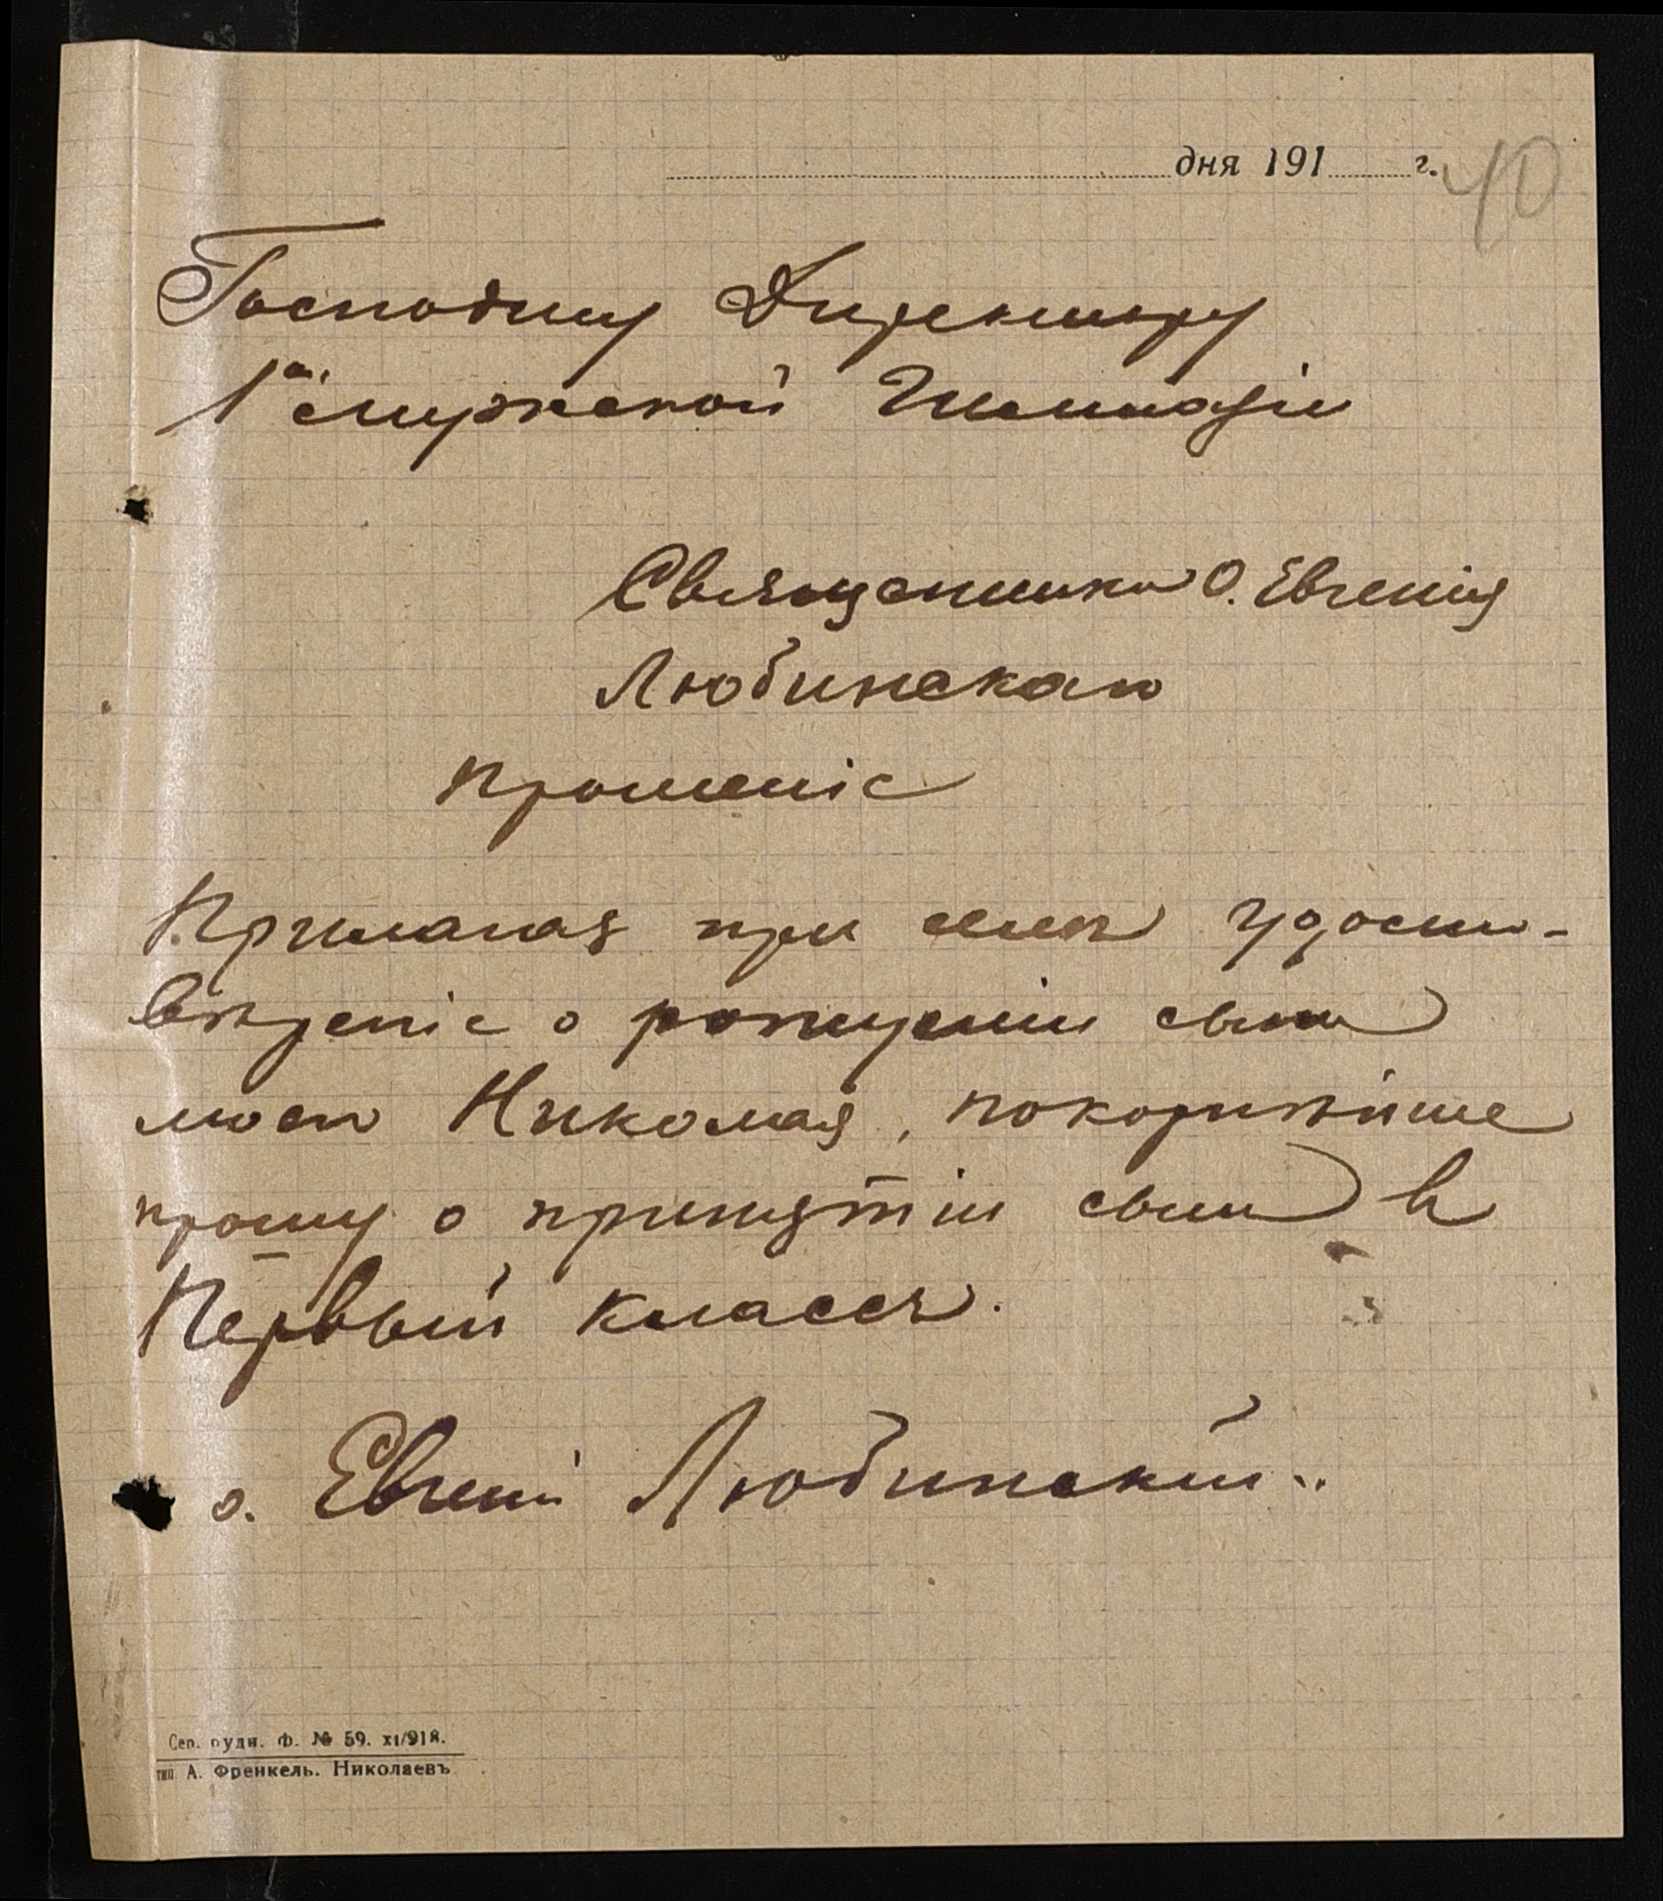 дня 191 г.
40
Господину Директору
1ой мужской Гимназіи
Священника О. Евгенія
Любинскаго
прошеніе
Прилагая при семъ удосто-
вѣреніе о рожденіи сына
моего Николая, покорнѣйше
прошу о принятіи сына в
Первый классъ.
о. Евгеній Любинскій
Сер. рудн. Ф. № 59. XI/918.
тип. А. Френкель. Николаевъ